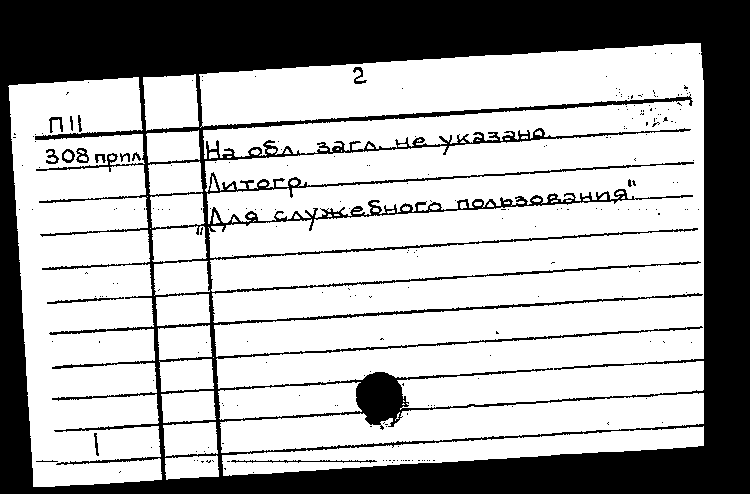 2
П11
308 прил. На обл. загл. не указано.
Литогр.
„Для служебного пользования".